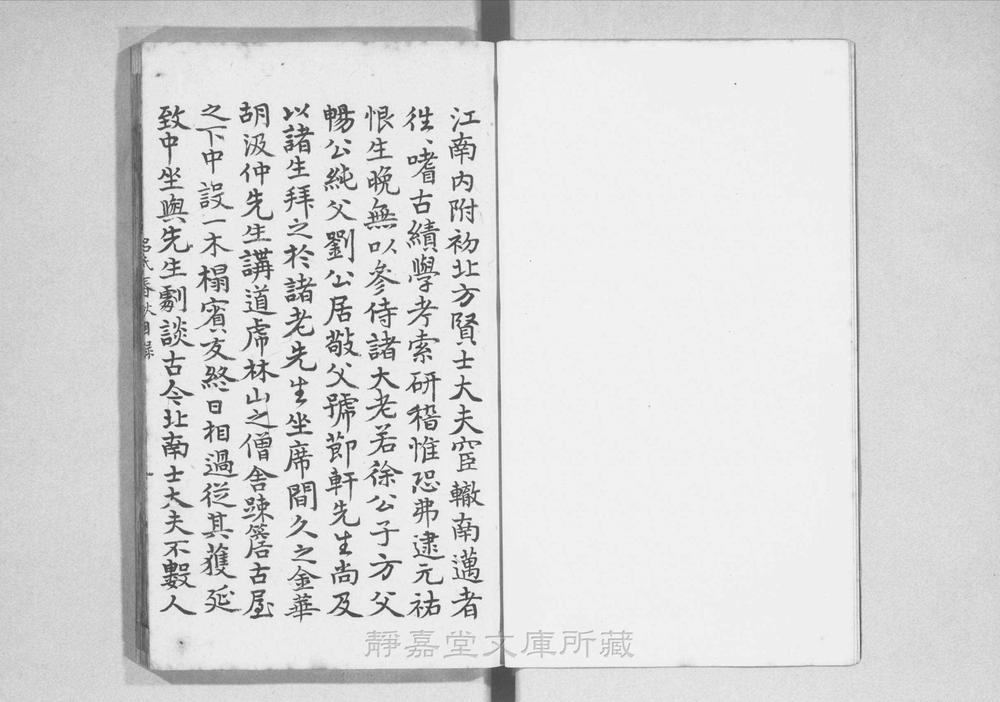 江南內附初北方賢士大夫宦轍南邁者
徃〻嗜古績學考索研稽惟恐弗逮元祐
恨生晚無以參侍諸大老若徐公子方父
暢公純父劉公居敬父號節軒先生尚及
以諸生拜之於諸老先生坐席間久之金華
胡汲仲先生講道虎林山之僧舍踈簷古屋
之下中設一木榻賓友終日相過從其獲延
致中坐與先生劇談古今北南士大夫不數人
呂氏春秋目錄
一
靜嘉堂文庫所藏